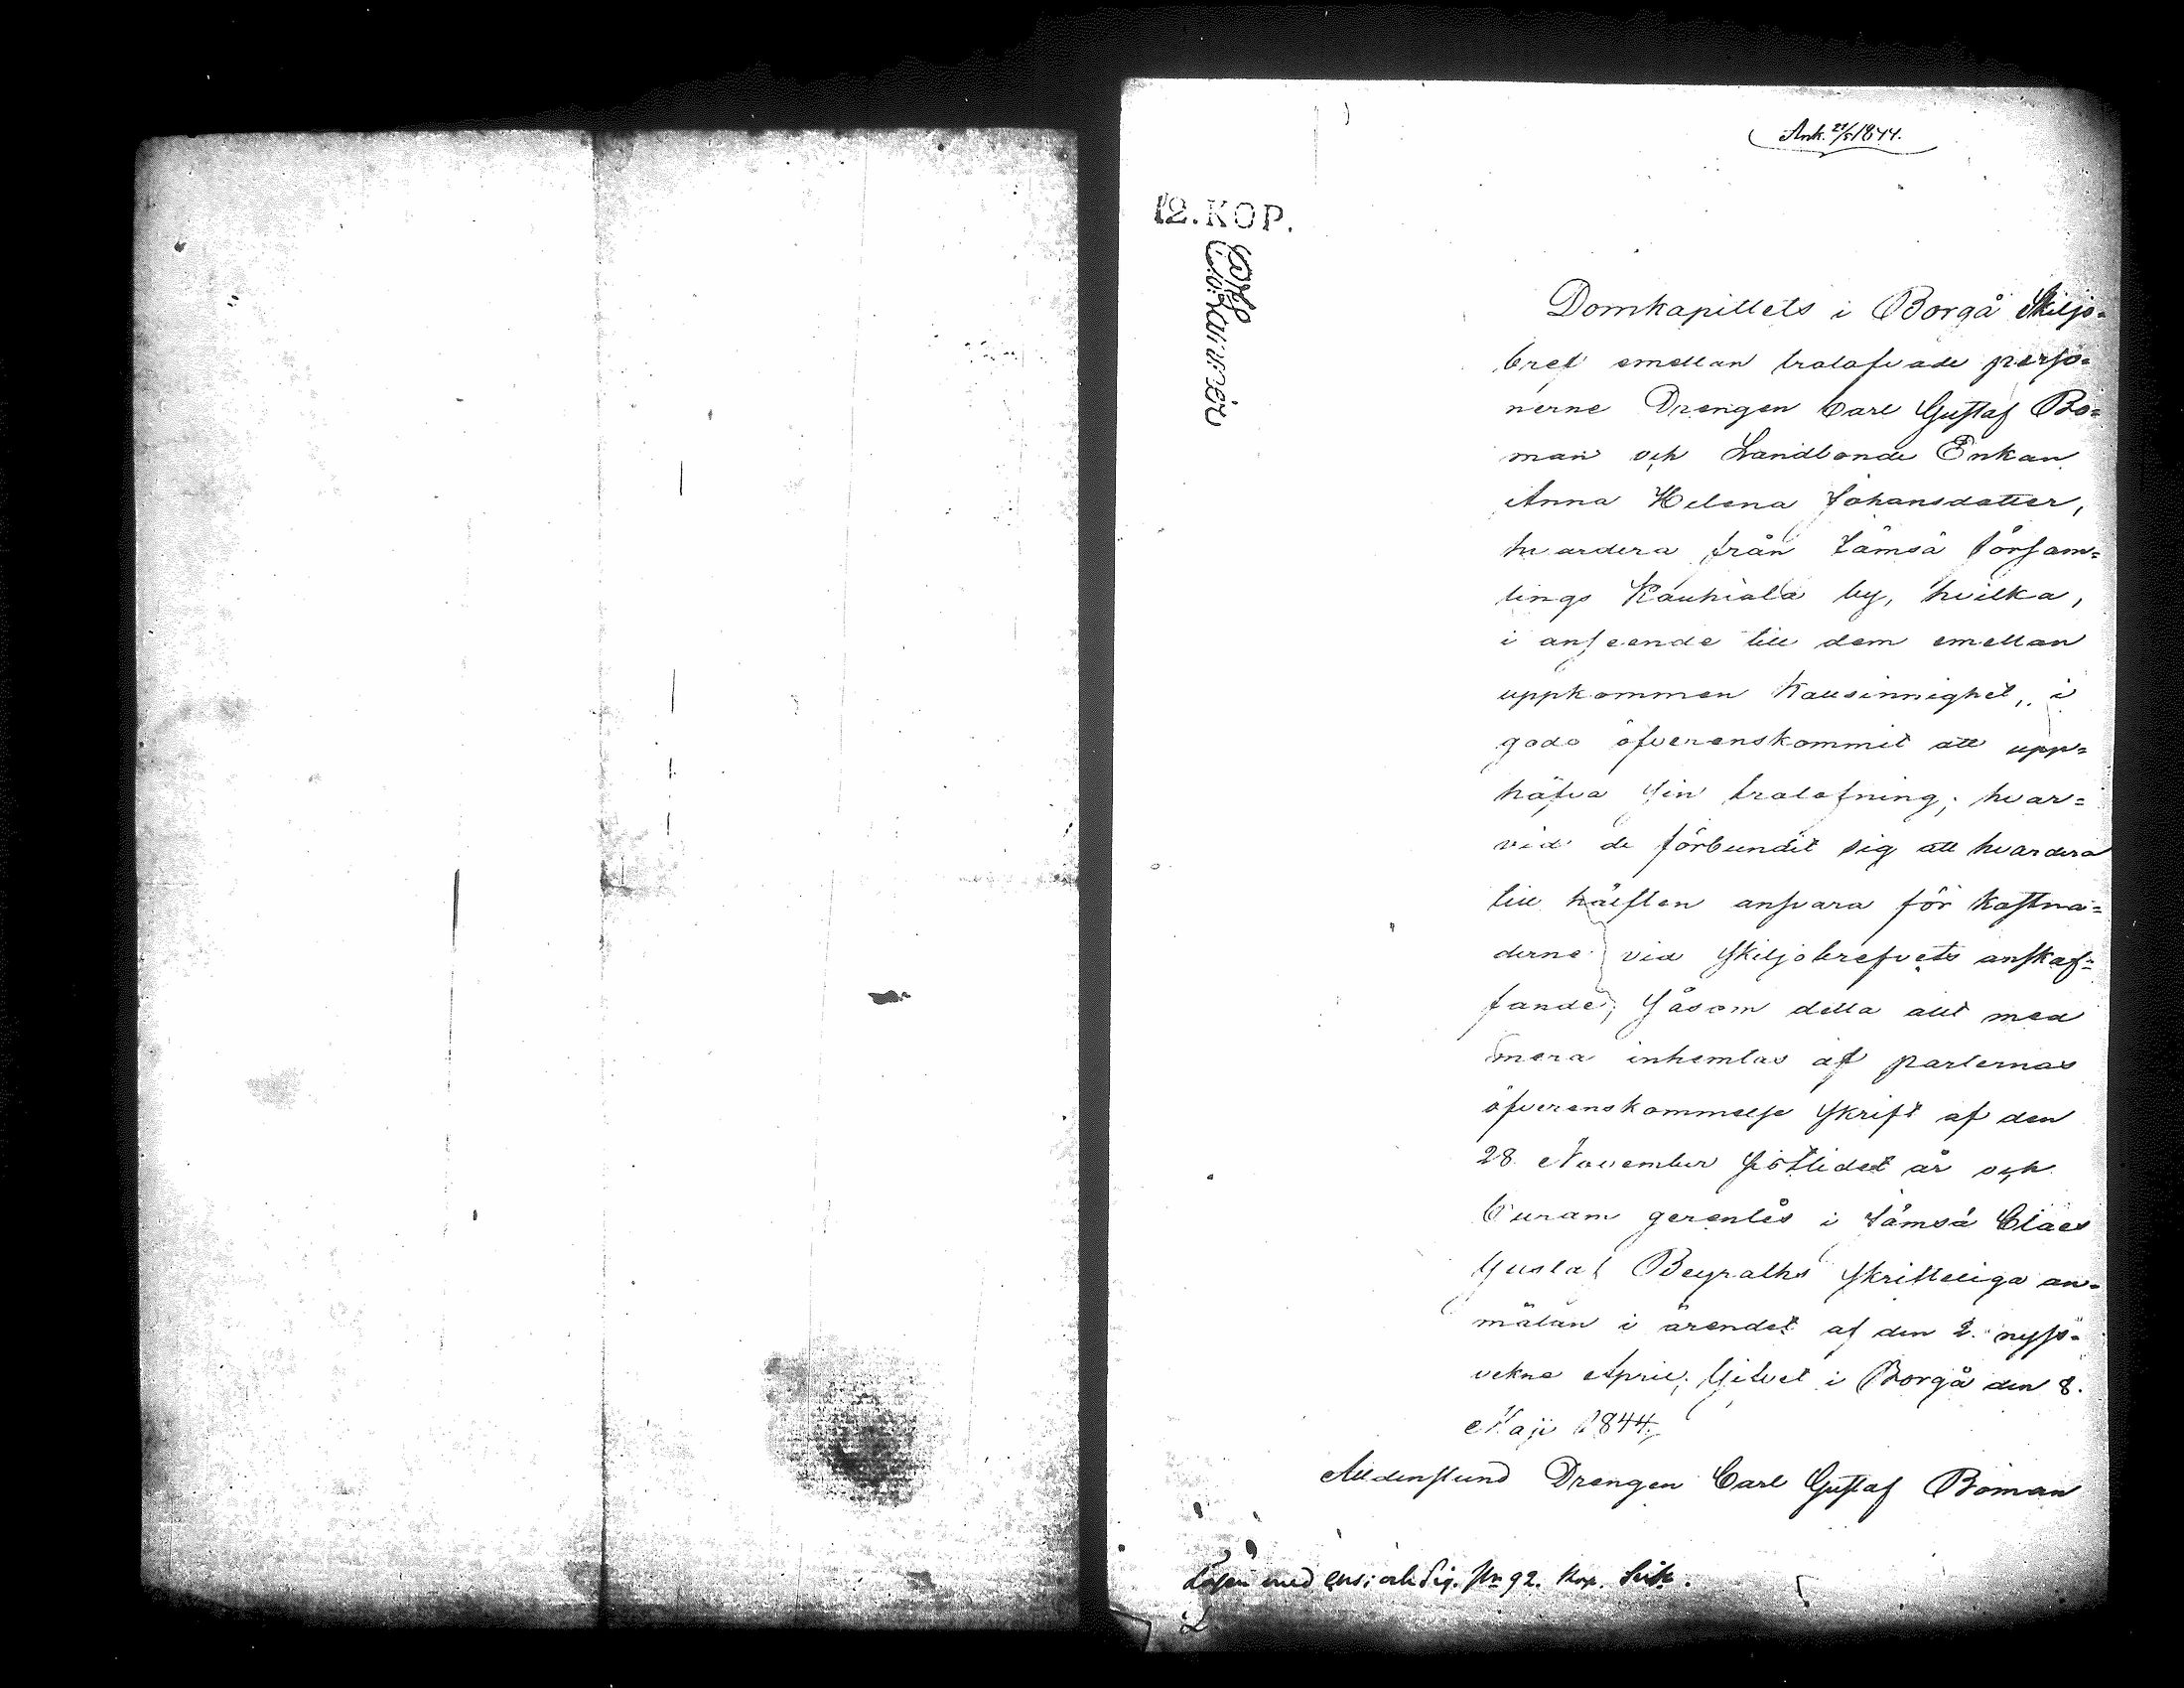 Ank. 21/5 1844.
12. KOP.
Domkapitlets i Borgå Skiljo-
bref emellan trolofvade perso-
nerne Drengen Carl Gustaf Bo-
man och Landbonde Enkan
Anna Helena Johansdotter,
hvardera från Jämsä försam-
lings Kauhiala by, hvilka,
i anseende till dem emellan
uppkommen kallsinnighet, i
godo öfverenskommit att upp-
häfva sin trolofning; hvar-
vid de förbundit sig att hvardera
till hälften ansvara för kostna-
derne vid skiljobrefvets anskaf-
fande; såsom detta allt med
mera inhemtas af parternas
öfverenskommelse skrift af den
28 November sistlidet år och
Curam gerentis i Jämsä Claes
Gustaf Beyraths skriftliga an-
mälan i ärendet af den 2 nyss-
vekne April; Gifvet i Borgå den 8.
Maji 1844.
Alldenstund Drengen Carl Gustaf Boman
Lösen med ens: och Sig. 92. kop. Silfr.